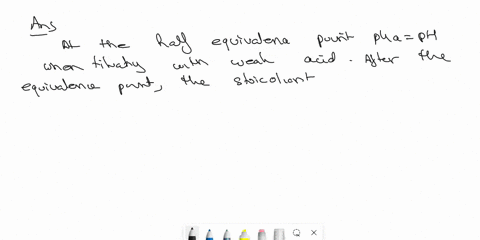 Ans
At the half equivalena point pka = pH
when titratiy with weak acid. After the
equivalence point, the stoicoliont